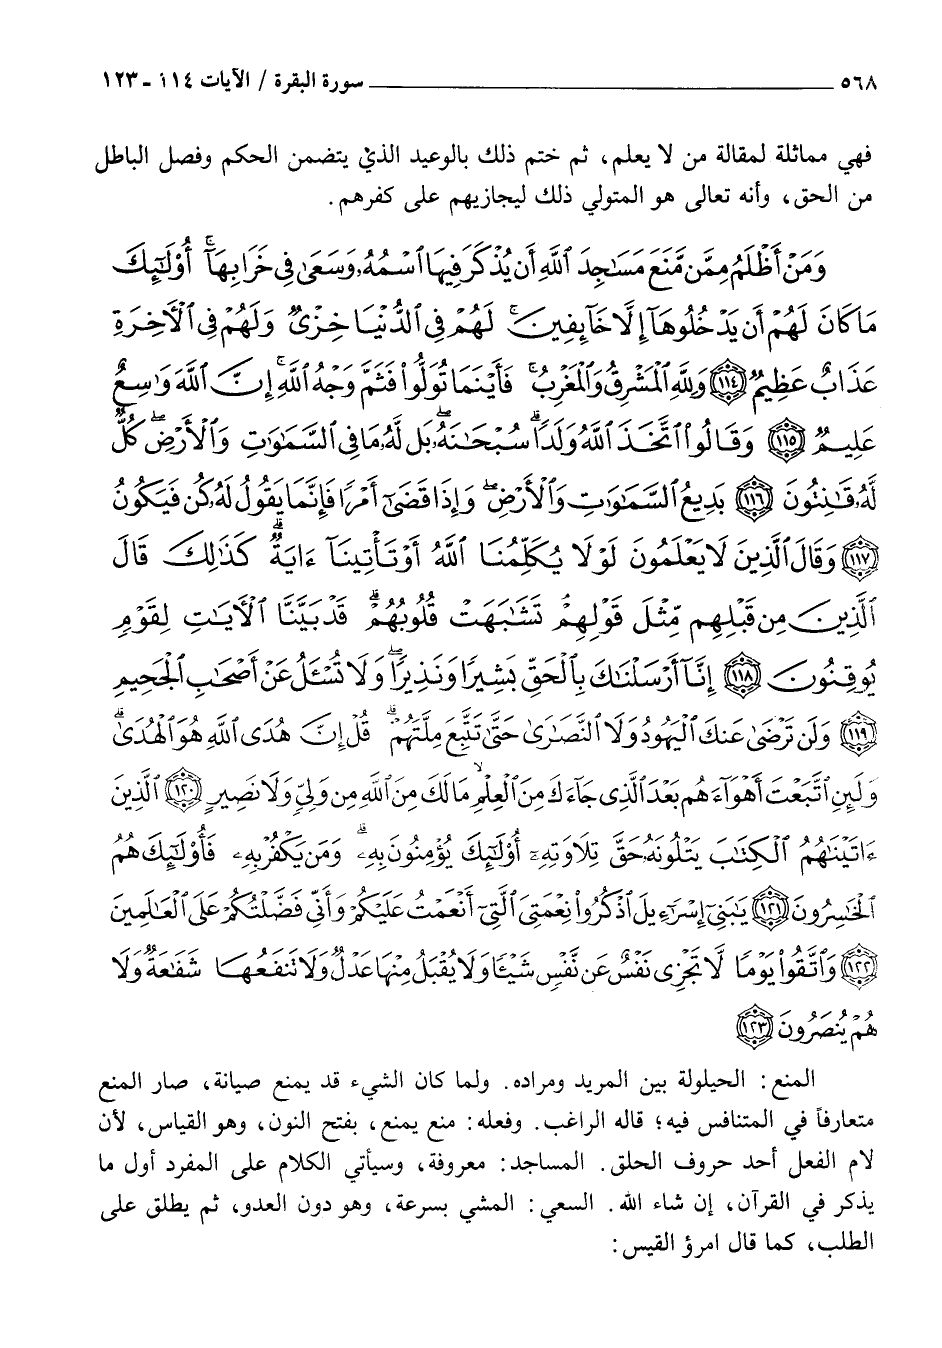 ٥٦٨ سورة البقرة / الآيات ١١٤ - ١٢٣
فهي مماثلة لمقالة من لا يعلم، ثم ختم ذلك بالوعيد الذي يتضمن الحكم وفصل الباطل
من الحق، وأنه تعالى هو المتولي ذلك ليجازيهم على كفرهم.
وَمَنْ أَظْلَمُ مِمَّن مَّنَعَ مَسَٰجِدَ ٱللَّهِ أَن يُذْكَرَ فِيهَا ٱسْمُهُۥ وَسَعَىٰ فِى خَرَابِهَآ ۚ أُو۟لَٰٓئِكَ
مَا كَانَ لَهُمْ أَن يَدْخُلُوهَآ إِلَّا خَآئِفِينَ ۚ لَهُمْ فِى ٱلدُّنْيَا خِزْىٌ وَلَهُمْ فِى ٱلْأَخِرَةِ
عَذَابٌ عَظِيمٌ ١١٤ وَلِلَّهِ ٱلْمَشْرِقُ وَٱلْمَغْرِبُ ۚ فَأَيْنَمَا تُوَلُّوا۟ فَثَمَّ وَجْهُ ٱللَّهِ ۚ إِنَّ ٱللَّهَ وَٰسِعٌ
عَلِيمٌ ١١٥ وَقَالُوا۟ ٱتَّخَذَ ٱللَّهُ وَلَدًا ۗ سُبْحَٰنَهُۥ ۖ بَل لَّهُۥ مَا فِى ٱلسَّمَٰوَٰتِ وَٱلْأَرْضِ ۖ كُلٌّ
لَّهُۥ قَٰنِتُونَ ١١٦ بَدِيعُ ٱلسَّمَٰوَٰتِ وَٱلْأَرْضِ ۖ وَإِذَا قَضَىٰٓ أَمْرًا فَإِنَّمَا يَقُولُ لَهُۥ كُن فَيَكُونُ
١١٧ وَقَالَ ٱلَّذِينَ لَا يَعْلَمُونَ لَوْلَا يُكَلِّمُنَا ٱللَّهُ أَوْ تَأْتِينَآ ءَايَةٌ ۗ كَذَٰلِكَ قَالَ
ٱلَّذِينَ مِن قَبْلِهِم مِّثْلَ قَوْلِهِمْ ۘ تَشَٰبَهَتْ قُلُوبُهُمْ ۗ قَدْ بَيَّنَّا ٱلْأَيَٰتِ لِقَوْمٍ
يُوقِنُونَ ١١٨ إِنَّآ أَرْسَلْنَٰكَ بِٱلْحَقِّ بَشِيرًا وَنَذِيرًا ۖ وَلَا تُسْـَٔلُ عَنْ أَصْحَٰبِ ٱلْجَحِيمِ
١١٩ وَلَن تَرْضَىٰ عَنكَ ٱلْيَهُودُ وَلَا ٱلنَّصَٰرَىٰ حَتَّىٰ تَتَّبِعَ مِلَّتَهُمْ ۗ قُلْ إِنَّ هُدَى ٱللَّهِ هُوَ ٱلْهُدَىٰ ۗ
وَلَئِنِ ٱتَّبَعْتَ أَهْوَآءَهُم بَعْدَ ٱلَّذِى جَآءَكَ مِنَ ٱلْعِلْمِ ۙ مَا لَكَ مِنَ ٱللَّهِ مِن وَلِىٍّ وَلَا نَصِيرٍ ١٢٠ ٱلَّذِينَ
ءَاتَيْنَٰهُمُ ٱلْكِتَٰبَ يَتْلُونَهُۥ حَقَّ تِلَاوَتِهِۦٓ أُو۟لَٰٓئِكَ يُؤْمِنُونَ بِهِۦ ۗ وَمَن يَكْفُرْ بِهِۦ فَأُو۟لَٰٓئِكَ هُمُ
ٱلْخَٰسِرُونَ ١٢١ يَٰبَنِىٓ إِسْرَٰٓءِيلَ ٱذْكُرُوا۟ نِعْمَتِىَ ٱلَّتِىٓ أَنْعَمْتُ عَلَيْكُمْ وَأَنِّى فَضَّلْتُكُمْ عَلَى ٱلْعَٰلَمِينَ
١٢٢ وَٱتَّقُوا۟ يَوْمًا لَّا تَجْزِى نَفْسٌ عَن نَّفْسٍ شَيْـًٔا وَلَا يُقْبَلُ مِنْهَا عَدْلٌ وَلَا تَنفَعُهَا شَفَٰعَةٌ وَلَا
هُمْ يُنصَرُونَ ١٢٣
المنع: الحيلولة بين المريد ومراده. ولما كان الشيء قد يمنع صيانة، صار المنع
متعارفاً في المتنافس فيه؛ قاله الراغب. وفعله: منع يمنع، بفتح النون، وهو القياس، لأن
لام الفعل أحد حروف الحلق. المساجد: معروفة، وسيأتي الكلام على المفرد أول ما
يذكر في القرآن، إن شاء الله. السعي: المشي بسرعة، وهو دون العدو، ثم يطلق على
الطلب، كما قال امرؤ القيس: